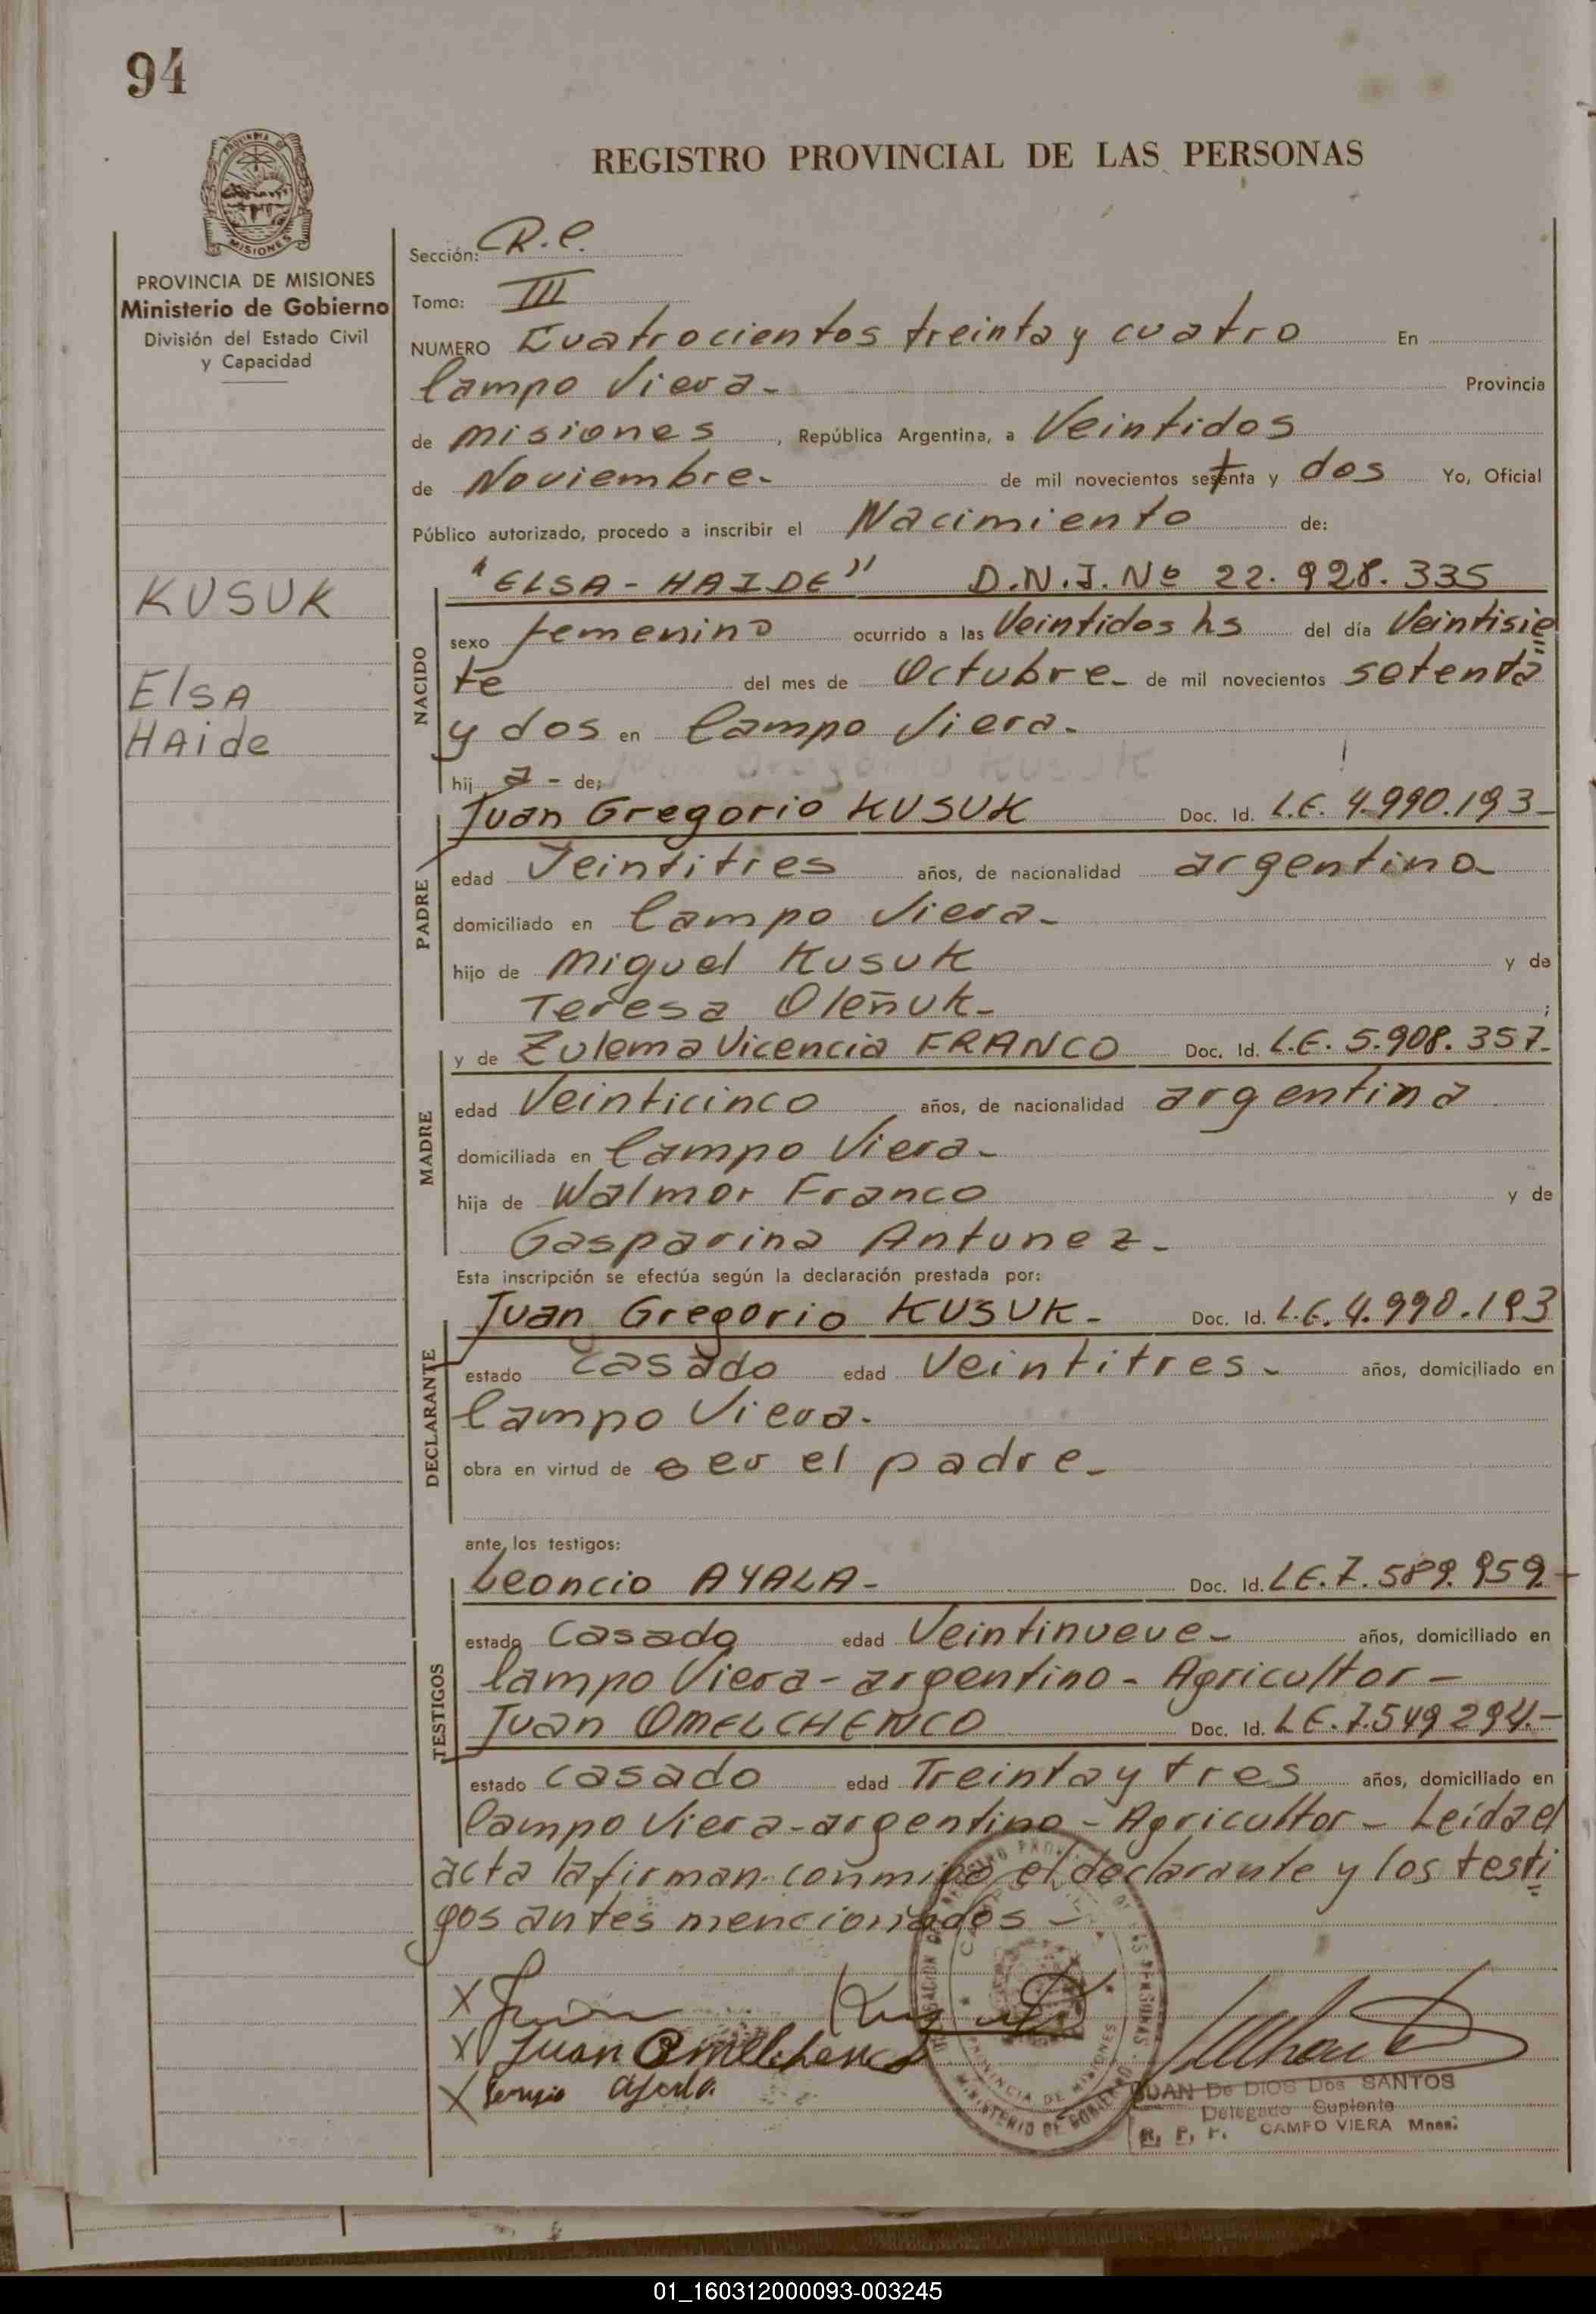 94
REGISTRO PROVINCIAL DE LAS PERSONAS
PROVINCIA DE MISIONES
Ministerio de Gobierno
División del Estado Civil
y Capacidad
KUSUK
Elsa
Haide
Sección: R.C.
Tomo: III
NUMERO Cuatrocientos treinta y cuatro En
Campo Viera - Provincia
de misiones, República Argentina, a Veintidos
de Noviembre - de mil novecientos setenta y dos Yo, Oficial
Público autorizado, procedo a inscribir el Nacimiento de:
NACIDO
"ELSA - HAIDE" D.N.I. Nº 22.928.335
sexo femenino ocurrido a las Veintidos hs del día Veintisie
te del mes de Octubre - de mil novecientos setenta
y dos en Campo Viera -
hij a - de;
PADRE
Juan Gregorio KUSUK Doc. Id. L.E. 4.990.193 -
edad Veintitres años, de nacionalidad argentina -
domiciliado en Campo Viera -
hijo de Miguel Kusuk y de
Teresa Oleñuk - ;
MADRE
y de Zulema Vicencia FRANCO Doc. Id. L.E. 5.908.357 -
edad Veinticinco años, de nacionalidad argentina
domiciliada en Campo Viera -
hija de Walmor Franco y de
Gasparina Antunez -
Esta inscripción se efectúa según la declaración prestada por:
DECLARANTE
Juan Gregorio KUSUK - Doc. Id. L.E. 4.990.193
estado Casado edad Veintitres - años, domiciliado en
Campo Viera -
obra en virtud de ser el padre -
ante los testigos:
TESTIGOS
Leoncio AYALA - Doc. Id. L.E. 7.589.959 -
estado Casado edad Veintinueve - años, domiciliado en
Campo Viera - argentino - Agricultor -
Juan OMELCHENCO Doc. Id. L.E. 7.549.294 -
estado casado edad Treinta y tres años, domiciliado en
Campo Viera - argentino - Agricultor - Leida el
acta la firman conmigo el declarante y los testi
gos antes mencionados -
X Juan
X Juan Omelchenco
X
JUAN De DIOS Dos SANTOS
Delegado Suplente
R. P. P. CAMPO VIERA Mnes.
PROVINCIA DE MISIONES
MINISTERIO DE GOBIERNO
01_160312000093-003245